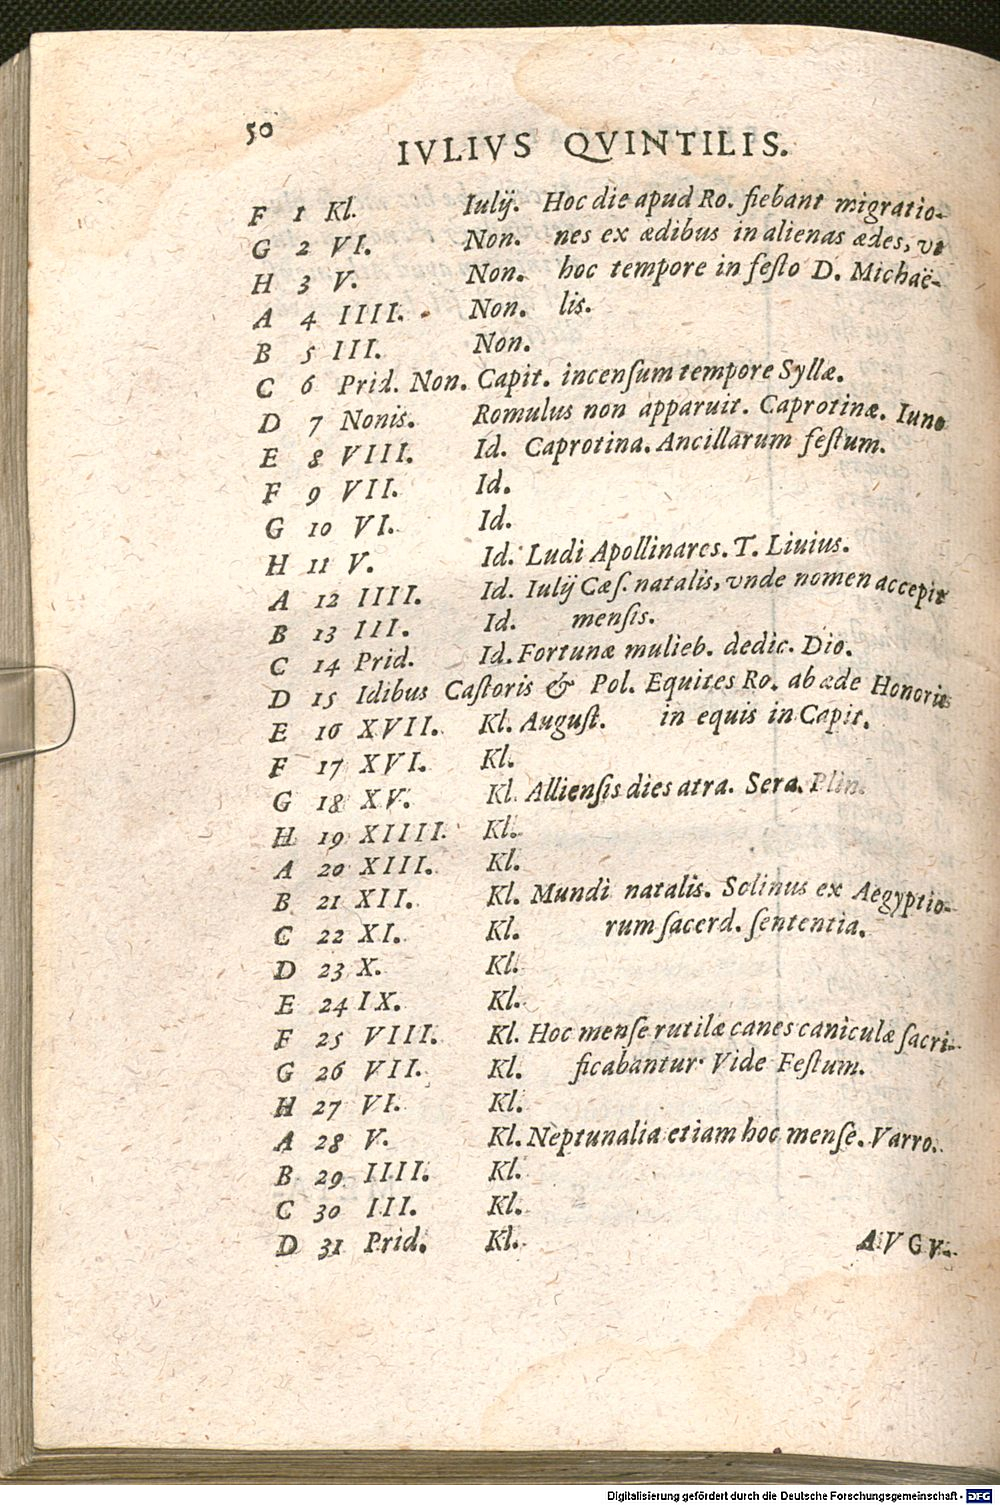 50
IVLIVS QVINTILIS.
F 1 Kl. Iulij. Hoc die apud Ro. fiebant migratio-
G 2 VI. Non. nes ex ædibus in alienas ædes, vt
H 3 V. Non. hoc tempore in feſto D. Michaë-
A 4 IIII. Non. lis.
B 5 III. Non.
C 6 Prid. Non. Capit. incenſum tempore Syllæ.
D 7 Nonis. Romulus non apparuit. Caprotinæ. Iuno
E 8 VIII. Id. Caprotina. Ancillarum feſtum.
F 9 VII. Id.
G 10 VI. Id.
H 11 V. Id. Ludi Apollinares. T. Liuius.
A 12 IIII. Id. Iulij Cæſ. natalis, vnde nomen accepit
B 13 III. Id. menſis.
C 14 Prid. Id. Fortunæ mulieb. dedic. Dio.
D 15 Idibus Caſtoris & Pol. Equites Ro. ab æde Honoris
E 16 XVII. Kl. Auguſt. in equis in Capit.
F 17 XVI. Kl.
G 18 XV. Kl. Allienſis dies atra. Sera. Plin.
H 19 XIIII. Kl.
A 20 XIII. Kl.
B 21 XII. Kl. Mundi natalis. Solinus ex Aegyptio-
C 22 XI. Kl. rum ſacerd. ſententia.
D 23 X. Kl.
E 24 IX. Kl.
F 25 VIII. Kl. Hoc menſe rutilæ canes caniculæ ſacri-
G 26 VII. Kl. ficabantur. Vide Feſtum.
H 27 VI. Kl.
A 28 V. Kl. Neptunalia etiam hoc menſe. Varro.
B 29 IIII. Kl.
C 30 III. Kl.
D 31 Prid. Kl. AVGV-
Digitalisierung gefördert durch die Deutsche Forschungsgemeinschaft - DFG